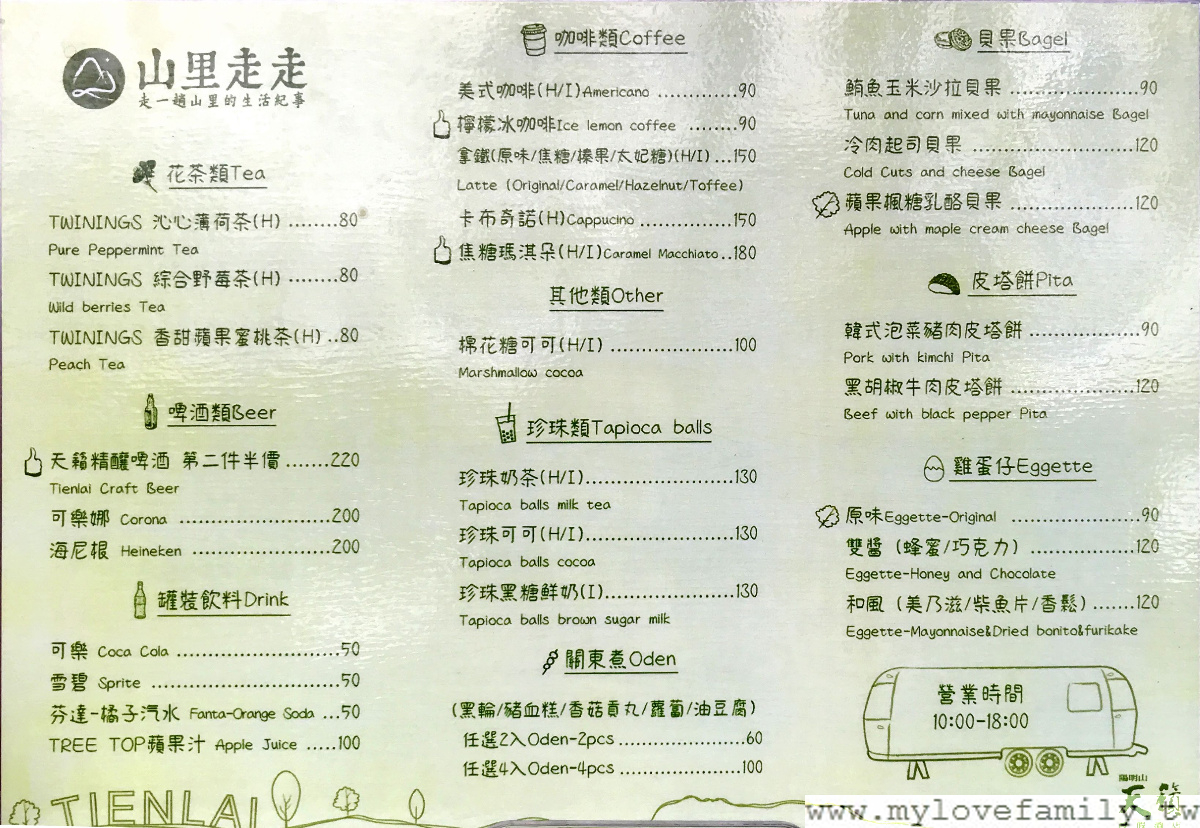 山里走走
走一趟山里的生活紀事
花茶類Tea
TWININGS 沁心薄荷茶(H) ........80
Pure Peppermint Tea
TWININGS 綜合野莓茶(H) ........80
Wild berries Tea
TWININGS 香甜蘋果蜜桃茶(H) ..80
Peach Tea
啤酒類Beer
天籟精釀啤酒 第二件半價.......220
Tienlai Craft Beer
可樂娜 Corona ...........................200
海尼根 Heineken .........................200
罐裝飲料Drink
可樂 Coca Cola ...........................50
雪碧 Sprite ...............................50
芬達-橘子汽水 Fanta-Orange Soda ...50
TREE TOP蘋果汁 Apple Juice .....100
TIENLAI
咖啡類Coffee
美式咖啡(H/I)Americano .............90
檸檬冰咖啡Ice lemon coffee ........90
拿鐵(原味/焦糖/榛果/太妃糖)(H/I)...150
Latte (Original/Caramel/Hazelnut/Toffee)
卡布奇諾(H)Cappucino ...............150
焦糖瑪淇朵(H/I)Caramel Macchiato..180
其他類Other
棉花糖可可(H/I) ....................100
Marshmallow cocoa
珍珠類Tapioca balls
珍珠奶茶(H/I).........................130
Tapioca balls milk tea
珍珠可可(H/I).........................130
Tapioca balls cocoa
珍珠黑糖鮮奶(I)......................130
Tapioca balls brown sugar milk
關東煮Oden
(黑輪/豬血糕/香菇貢丸/蘿蔔/油豆腐)
任選2入Oden-2pcs.....................60
任選4入Oden-4pcs....................100
貝果Bagel
鮪魚玉米沙拉貝果 ......................90
Tuna and corn mixed with mayonnaise Bagel
冷肉起司貝果 ...........................120
Cold Cuts and cheese Bagel
蘋果楓糖乳酪貝果 ......................120
Apple with maple cream cheese Bagel
皮塔餅Pita
韓式泡菜豬肉皮塔餅 ...................90
Pork with kimchi Pita
黑胡椒牛肉皮塔餅 ......................120
Beef with black pepper Pita
雞蛋仔Eggette
原味Eggette-Original .....................90
雙醬 (蜂蜜/巧克力) .................120
Eggette-Honey and Chocolate
和風 (美乃滋/柴魚片/香鬆).......120
Eggette-Mayonnaise&Dried bonito&furikake
營業時間
10:00-18:00
陽明山
天籟
www.mylovefamily.tw